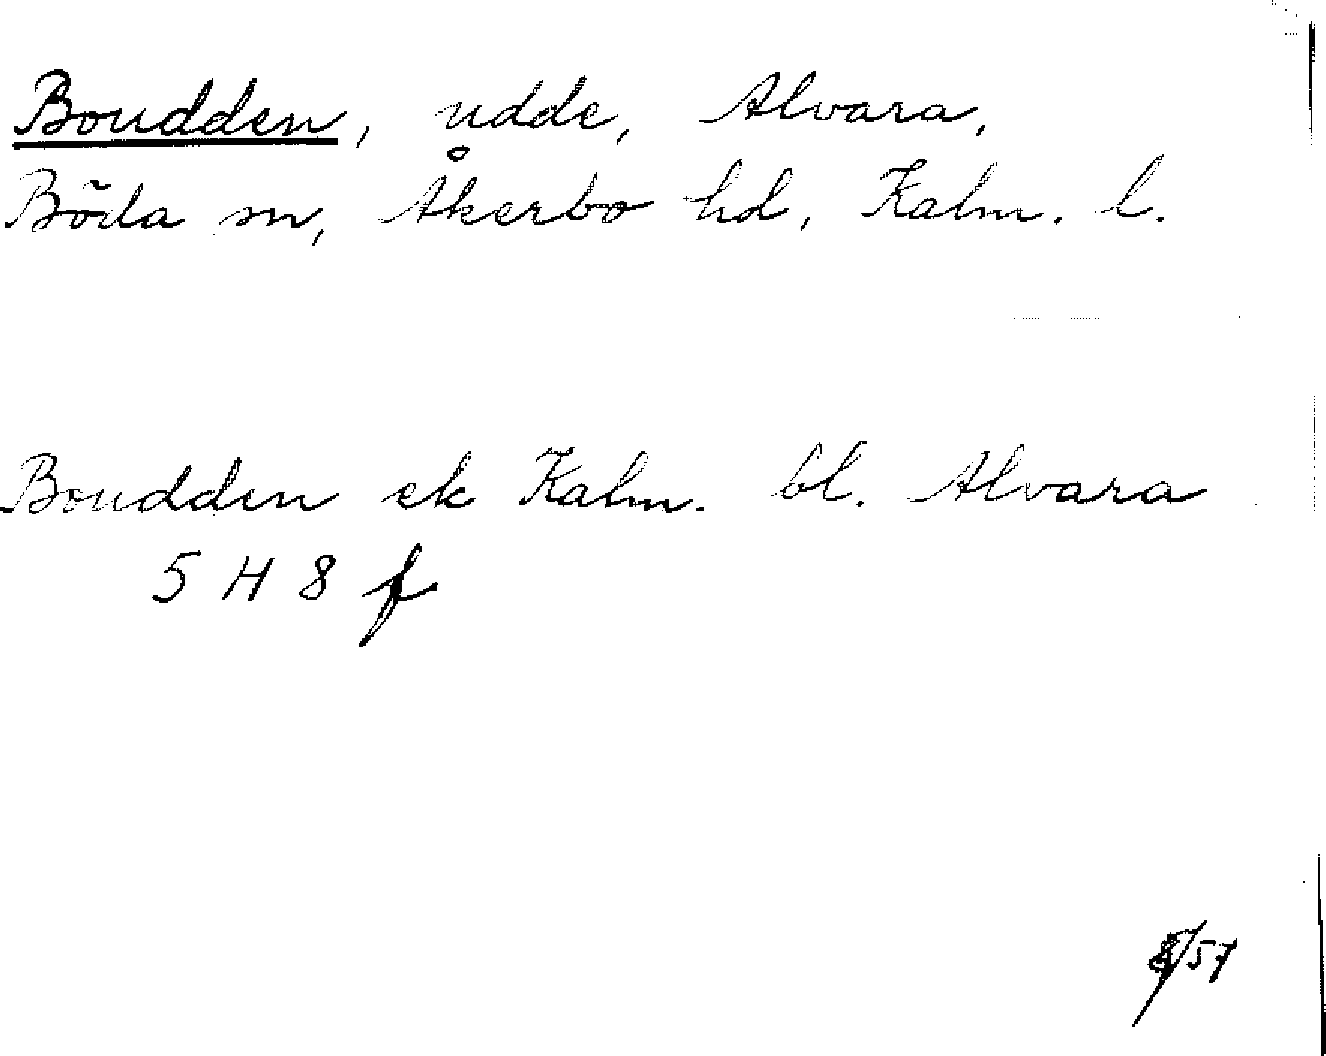 Boudden, udde, Alvara,
Böda sn, Åkerbo hd, Kalm. l.
Boudden ek Kalm. bl. Alvara
5 H 8 f
8/57